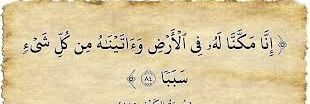 ﴿ إِنَّا مَكَّنَّا لَهُۥ فِى ٱلْأَرْضِ وَءَاتَيْنَٰهُ مِن كُلِّ شَىْءٍ
سَبَبًا ٨٤ ﴾